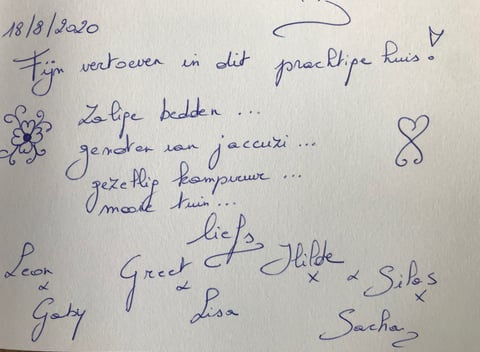 18/8/2020
Fijn vertoeven in dit prachtige huis!
Zalige bedden ...
genoten van jaccuzi ...
gezellig kampvuur ...
mooie tuin ...
liefs
Leon & Gaby
Greet & Lisa
Hilde x & Silas x
Sacha